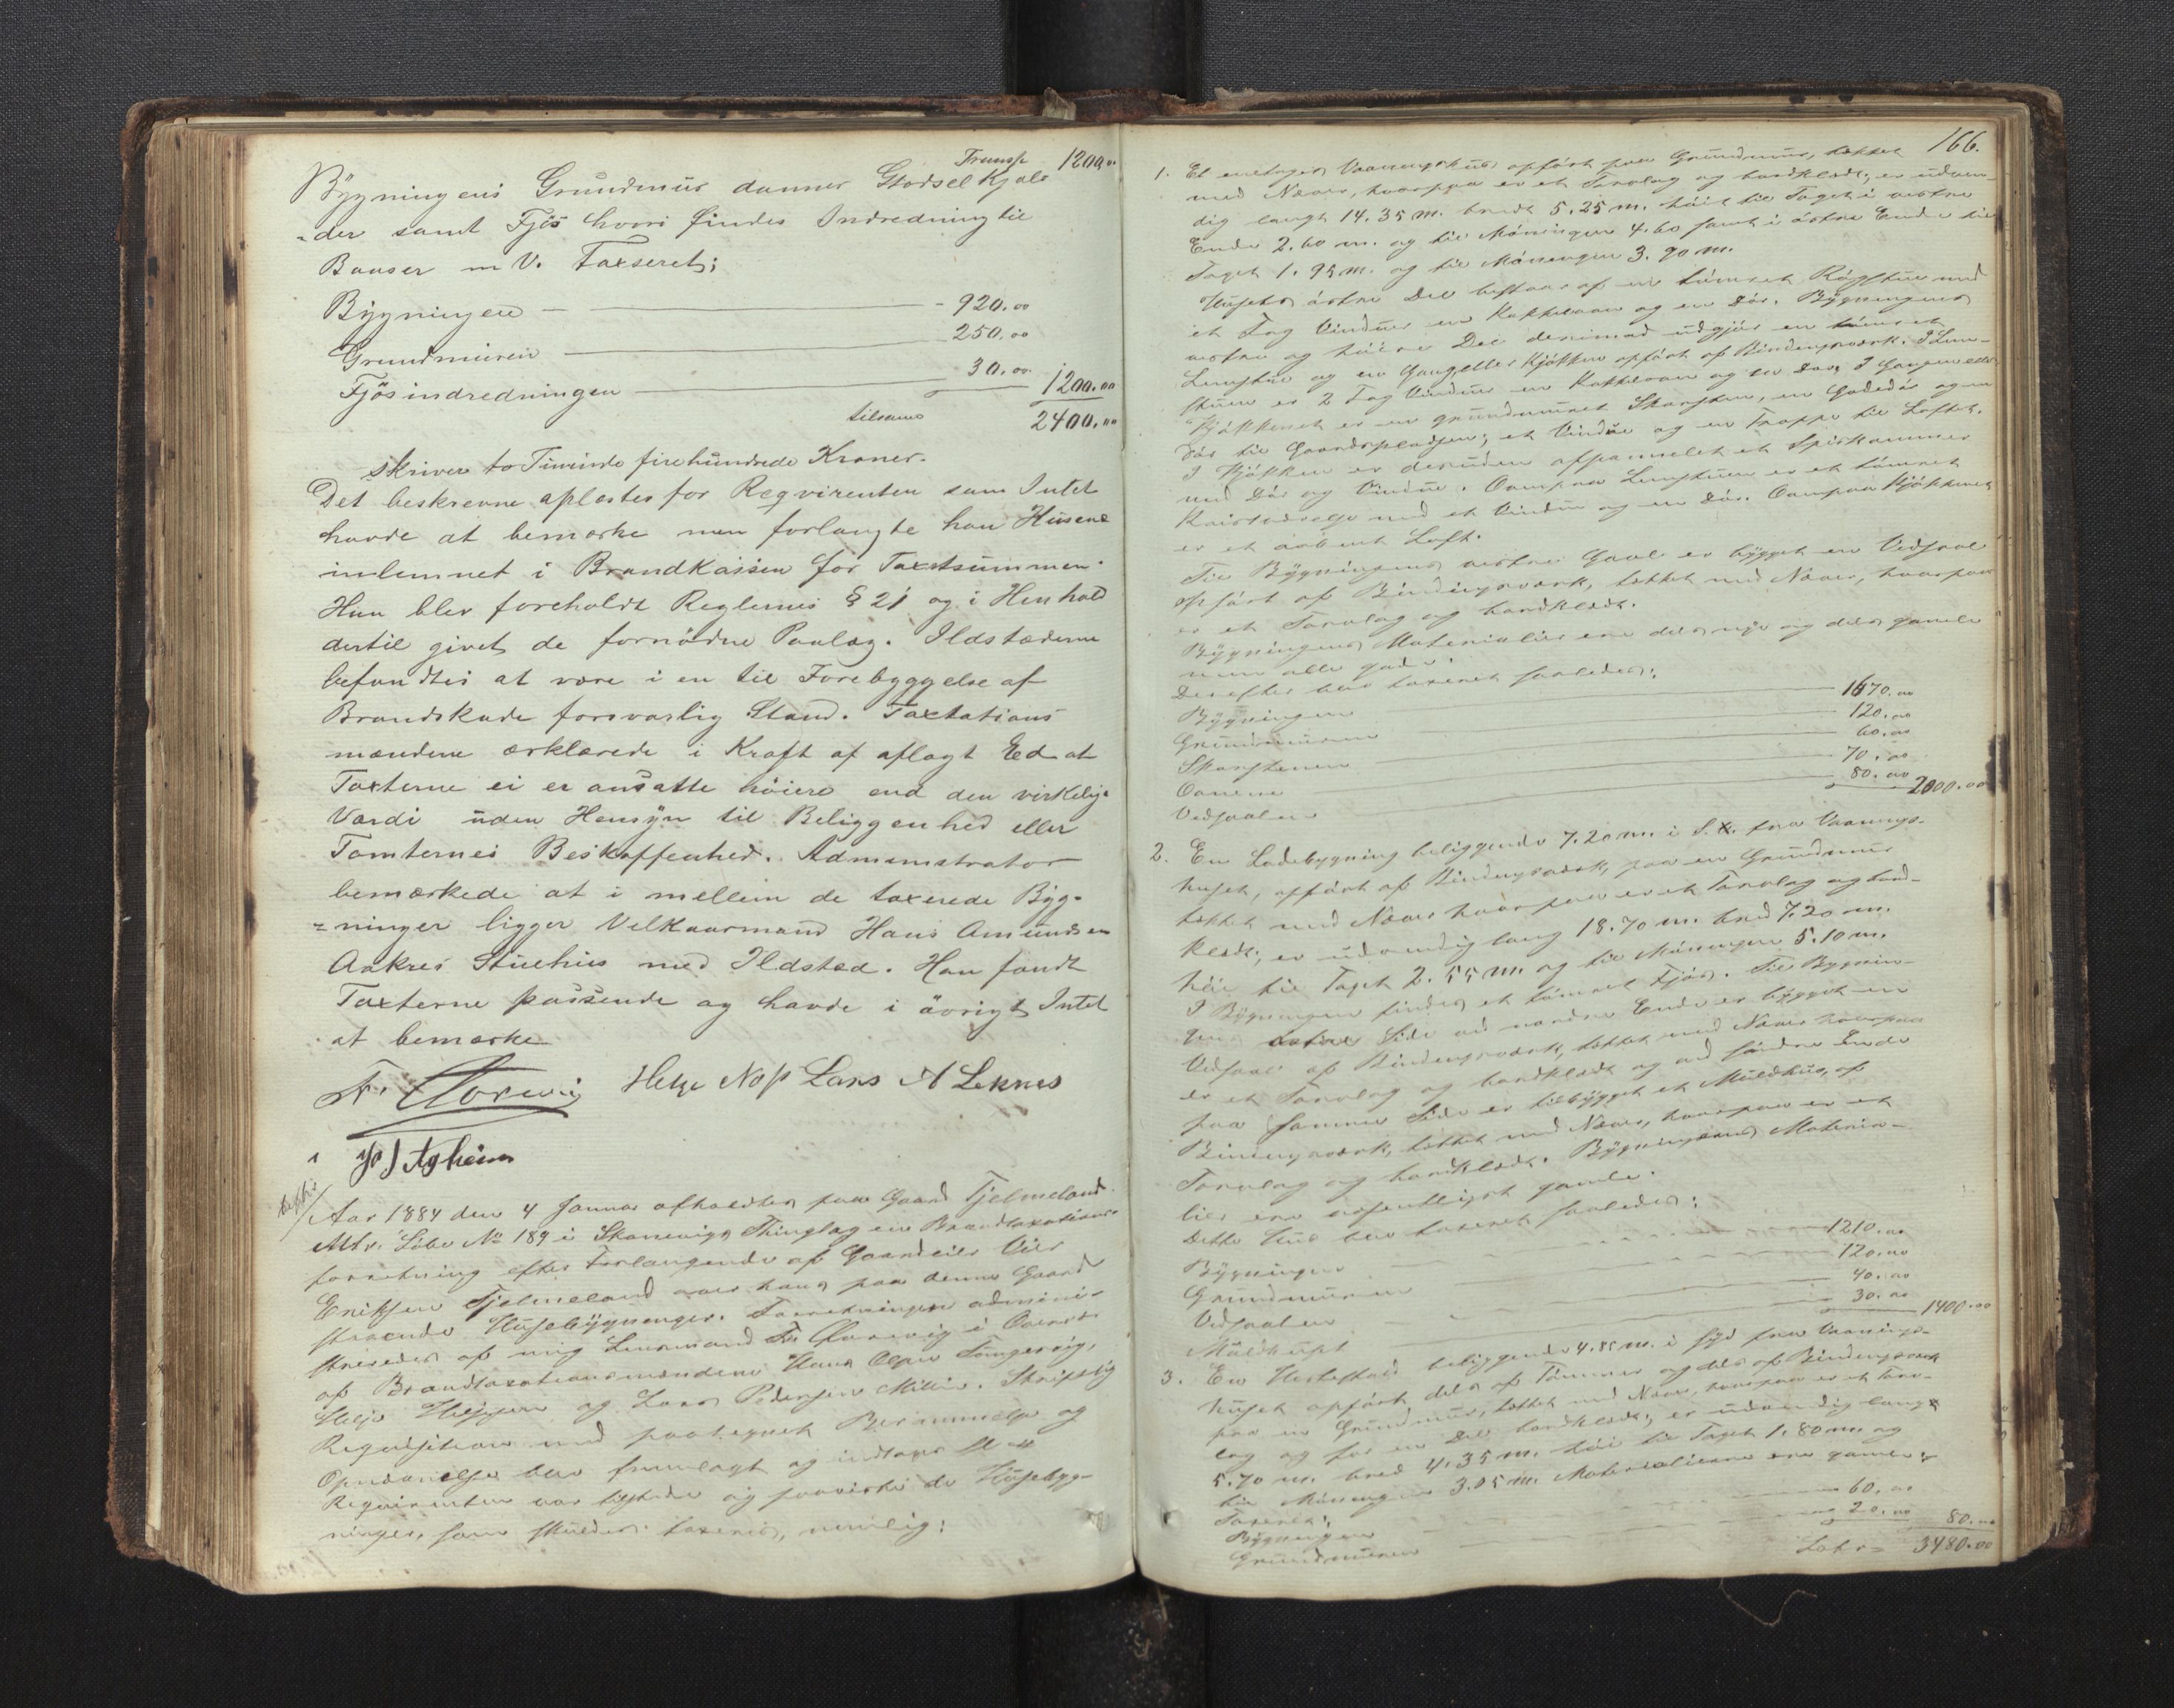 Transp 1200.00
Bygningens Grundmur danner Gjødselkjæl-
-der samt Fjös hvori findes Indredning til
Baaser m V. Taxseret;
Bygningen - 920.00
Grundmuren 250.00
Fjösindredningen 30.00 1200.00
tilsams 2400.00
skriver to Tusinde firehundrede Kroner.
Det beskrevne oplæstes for Reqvirenten som Intet
havde at bemærke men forlangte han Husene
indlemmet i Brandkassen for Taxtsummen.
Han blev foreholdt Reglernes § 21 og i Henhold
dertil givet de fornödne Paalæg. Ildstæderne
befandtes at være i en til Forebyggelse af
Brandskade forsvarlig Stand. Taxtations
mændene erklærede i Kraft af aflagt Eed at
Taxterne ei er ansatte höiere end den virkelige
Værdi uden Hensyn til Beliggenhed eller
Tomternes Beskaffenhed. Administrator
bemærkede at i mellem de taxerede Byg-
=ninger ligger Velkaarmand Hans Amundsen
Aakres Stuehus med Ildsted. Han fandt
Taxterne passende og havde i övrigt Intet
at bemærke
Fr. Clorevig Helge Næs Lars A Leknes
Aar 1884 den 4 Januar afholdtes paa Gaard Tjelmeland
Mtr. Löbe No 189 i Skonevigs Thinglag en Brandtaxations-
forretning efter Forlangende af Gaardeier Vier
Eriksen Tjelmeland over hans paa denne Gaard
staaende Husebygninger. Forretningen admini-
streredes af mig Lensmand Fr. Clorevig i Overvær
af Brandtaxationsmændene Hans Olsen Tungesvig,
Helje Heljesen og Lars Pedersen Milie. Skriftlig
Reqvisition med paategnet Berammelse og
Opnævnelse blev fremlagt og indtages
Reqvirenten var tilstede og paaviste de Husebyg-
ninger, som skulde taxeres, nemlig:
166.
1. Et enetages Vaaningshus opfört paa Grundmur, tækket
med Næver, hvorpaa er et Torvlag og bordklædt; er udven-
dig langt 14.35 m. bredt 5.25 m. höit til Taget i vestre
Ende 2.60 m. og til Möningen 4.60 samt i östre Ende til
Taget 1.95 m. og til Möningen 3.90 m.
Husets östre Del bestaar af en tömret Rögstue med
et Fag Vinduer en Kakkelovn og en Dör. Bygningens
vestre og höiere Del derimod udgjör en tömret
Lemstue og en Gang eller Kjökken opfört af Bindingsværk. I Lem-
stuen er 2 Fag Vinduer en Kakkelovn og en Dör, I Gangen eller
Kjökkenet er en grundmuret Skorsten, en Gadedör og en
Dör til Gaardspladsen; et Vindue og en Trappe til Loftet.
I Kjökken er desuden afpannelet et Spiskammer
med Dör og Vindue. Ovenpaa Lemstuen er et tömret
Kvistværelse med et Vindue og en Dör. Ovenpaa Kjökkenet
er et aabent Loft.
Til Bygningens vestre Gavl er bygget en Vedsval
opfört af Bindingsværk, tækket med Næver, hvorpaa
er et Torvlag og bordklædt.
Bygningens Materialier ere dels nye og dels gamle
men alle gode.
Derefter blev taxeret saaledes:
Bygningen 1670.00
Grundmuren 120.00
Skorstenen 60.00
Ovnene 70.00
Vedsvalen 80.00 2000.00
2. En Ladebygning beliggende 7.20 m. i S.V. fra Vaanings-
huset, opfört af Bindingsværk, paa en Grundmur
tækket med Næver hvorpaa er et Torvlag og bord-
klædt; er udvendig lang 18.70 m. bred 7.20 m.
höi til Taget 2.55 m. og til Möningen 5.10 m.
I Bygningen findes et tömret Fjös. Til Bygnin-
gens östre Side ved nordre Ende er bygget en
Vedsval af Bindingsværk, tækket med Næver hvorpaa
er et Torvlag og bordklædt og ved söndre Ende
paa samme Side er tilbygget et Muldhus, af
Bindingsværk, tækket med Næver, hvorpaa er et
Torvlag og bordklædt. Bygningens Materia-
lier ere væsentligst gamle.
Dette Hus blev taxeret saaledes:
Bygningen 1210.00
Grundmuren 120.00
Vedsvalen 40.00
Muldhuset 30.00 1400.00
3. En Hestestald beliggende 4.85 m. i Syd fra Vaanings-
huset opfört dels af Tömmer og dels af Bindingsværk
paa en Grundmur, tækket med Næver, hvorpaa er et Torv-
lag og for en Del bordklædt; er udvendig lang
5.70 m. bred 4.35 m. höi til Taget 1.80 m. og
til Möningen 3.05 m. Materialierne ere gamle.
Taxeret:
Bygningen 60.00
Grundmuren 20.00 80.00
Latr = 3480.00